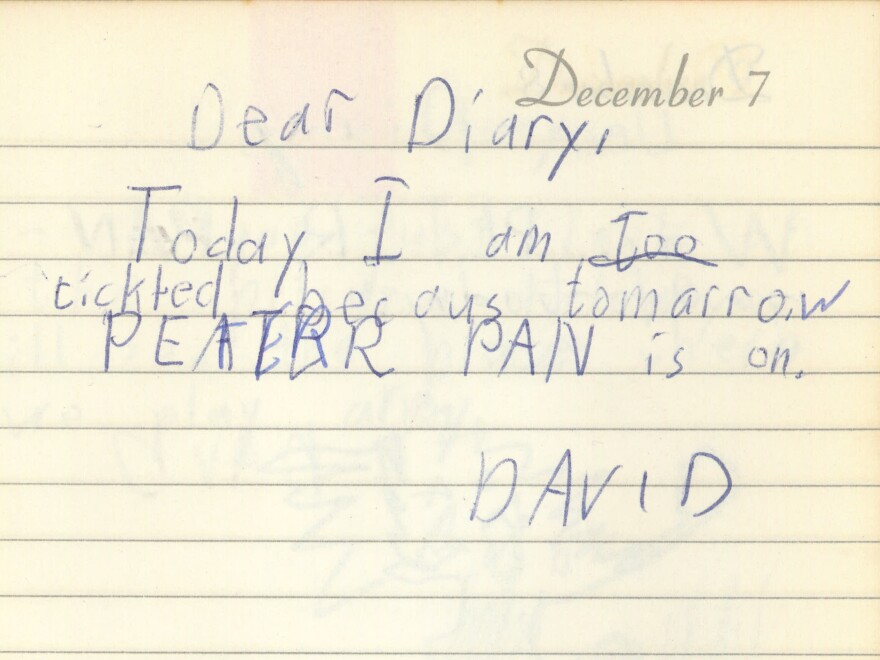 December 7
Dear Diary,
Today I am Too
tickted becaus tomarrow
PEATER PAN is on.
DAVID